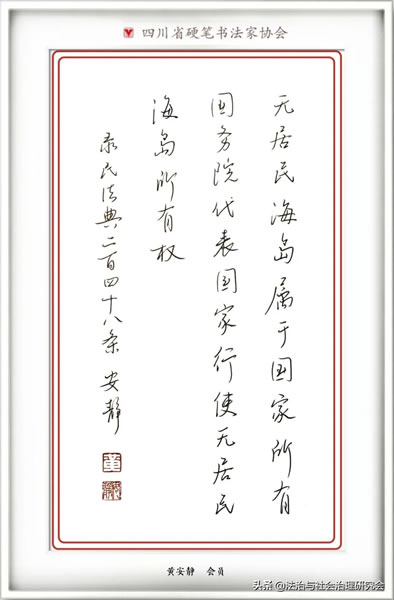 四川省硬笔书法家协会
无居民海岛属于国家所有
国务院代表国家行使无居民
海岛所有权
录民法典二百四十八条 安静
黄安静 会员
头条@法治与社会治理研究会